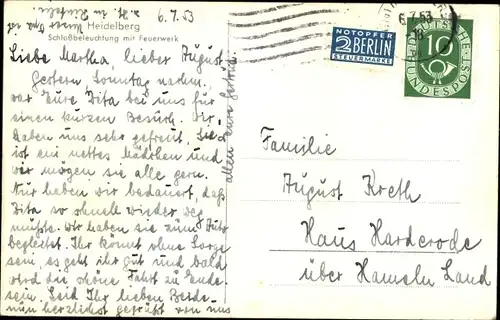 6.7.53
Heidelberg
Schloßbeleuchtung mit Feuerwerk
Liebe Martha, lieber August
Gestern Sonntag nachm.
war Eure Zita bei uns für
einen kurzen Besuch. Wir
haben uns sehr gefreut. Sie
ist ein nettes Mädchen und
wir mögen sie alle gern.
Nur haben wir bedauert, daß
Zita so schnell wieder weg
mußte. Wir haben sie zum Auto
begleitet. Ihr könnt ohne Sorge
sein es geht ihr gut und bald
wird die schöne Fahrt zu Ende
sein. Seid Ihr lieben Beide
nun herzlichst gegrüßt von uns
allen Eure Gertrud
NOTOPFER
2 BERLIN
STEUERMARKE
6.7.53
10
DEUTSCHE
BUNDESPOST
Familie
August Kreth
Haus Harderode
über Hameln Land